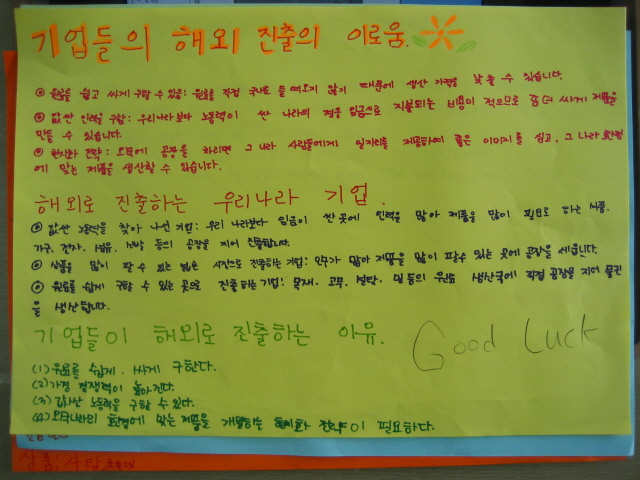 기업들의 해외 진출의 이로움.
⊙ 원료를 쉽고 싸게 구할 수 있음: 원료를 직접 국내로 들여오지 않기 때문에 생산 가격을 낮출 수 있습니다.
⊙ 값싼 인력을 구함: 우리나라보다 노동력이 싼 나라의 점은 임금으로 지불되는 비용이 적으므로 좀 더 싸게 제품을
만들 수 있습니다.
⊙ 현지화 전략: 외국에 공장을 차리면 그 나라 사람들에게 일자리를 제공하여 좋은 이미지를 심고, 그 나라 환경
에 맞는 제품을 생산할 수 있습니다.
해외로 진출하는 우리나라 기업.
⊙ 값싼 노동력을 찾아 나선 기업: 우리 나라보다 임금이 싼 곳에 인력을 많아 제품을 많이 필요로 하는 식품.
가구. 전자. 섬유. 신발 등의 공장을 지어 진출합니다.
⊙ 상품을 많이 팔 수 있는 넓은 시장으로 진출하는 기업: 인구가 많아 제품을 많이 팔수 있는 곳에 공장을 세웁니다.
⊙ 원료를 쉽게 구할 수 있는 곳으로 진출하는 기업: 목재. 고무. 설탕. 밀 등의 원료 생산국에 직접 공장을 지어 물건
을 생산합니다.
기업들이 해외로 진출하는 이유.
Good Luck
(1) 원료를 쉽게. 싸게 구한다.
(2) 가격 경쟁력이 높아진다.
(3) 값싼 노동력을 구할 수 있다.
(4) 외국나라의 환경에 맞는 제품을 개발하는 현지화 전략이 필요하다.
상품: 사탕